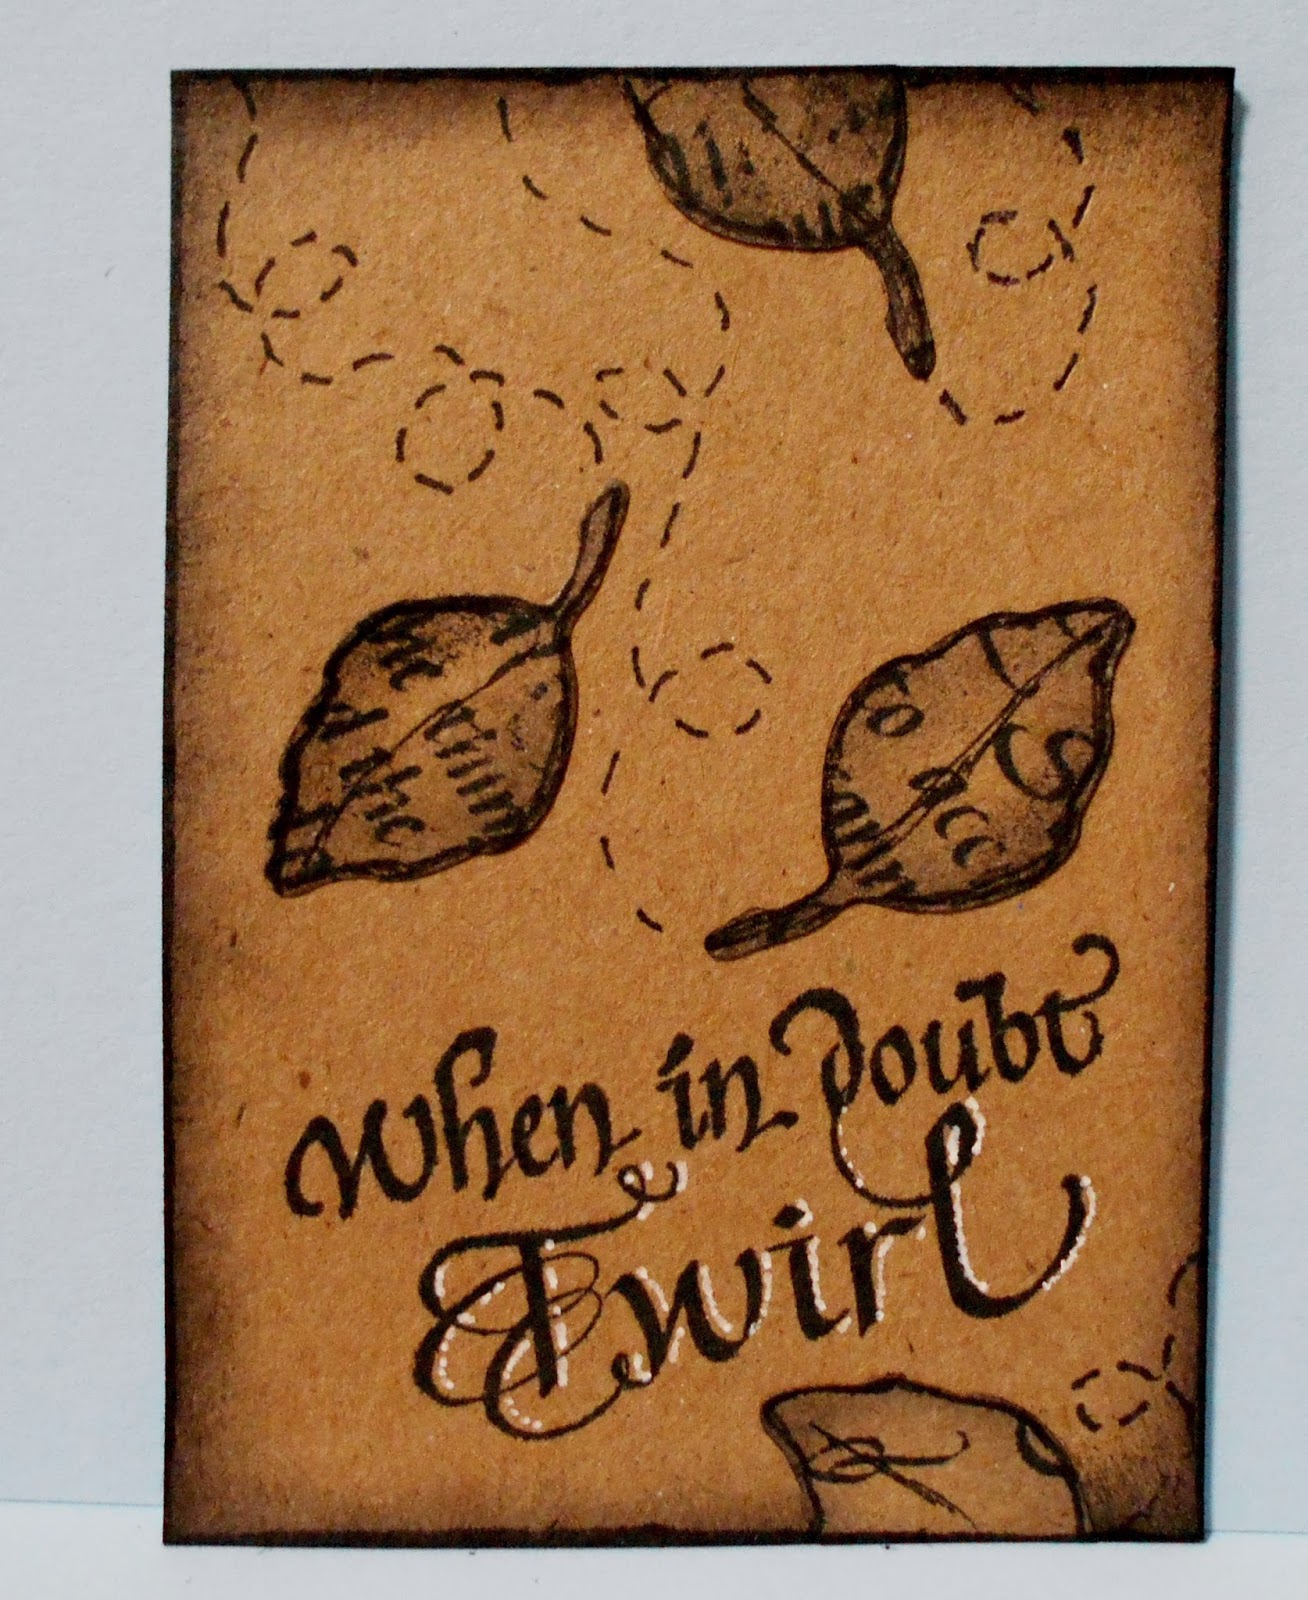 When in doubt
Twirl